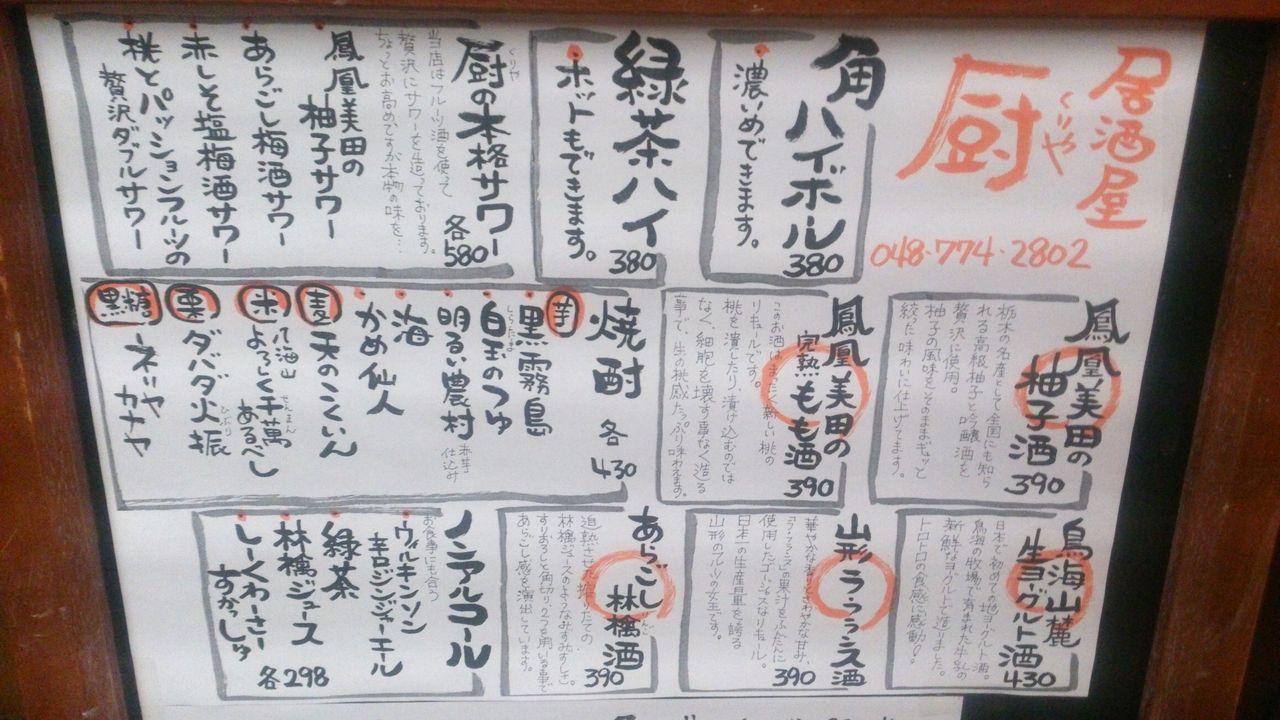 居酒屋
厨
くりや
048-774-2802
角ハイボール
380
・濃いめできます。
緑茶ハイ
380
・ホットもできます。
厨の本格サワー
くりや
各580
当店はフルーツ酒を使って
贅沢にサワーを造っております。
ちょっとお高めですが本物の味を…
・鳳凰美田の
柚子サワー
・あらごし梅酒サワー
・赤しそ塩梅酒サワー
・桃とパッションフルーツの
贅沢ダブルサワー
鳳凰美田の
柚子酒
390
栃木の名産として全国にも知ら
れる高級柚子と吟醸酒を
贅沢に使用。
柚子の風味をそのままギュッと
絞った味わいに仕上げてます。
鳳凰美田の
完熟もも酒
390
このお酒はまったく新しい桃の
リキュールです。
桃を潰したり、漬け込むのでは
なく、細胞を壊す事なく造る
事で、生の桃感たっぷり味わえます。
焼酎
各430
芋
・黒霧島
・白玉のつゆ
しらたま
・明るい農村
赤芋仕込み
・海
・かめ仙人
麦
天のこくいん
米
八海山
よろしく千萬
せんまん
あるべし
栗
ダバダ火振
ひぶり
黒糖
ネリヤ
カナヤ
鳥海山麓
生ヨグルト酒
430
日本で初めての地ヨーグルト酒。
鳥海の牧場で育まれた牛乳の
新鮮なヨーグルトで造りました。
トロトロの食感に感動!
山形ラ・フランス酒
390
華やかな香りとさわやかな甘み、
「ラ・フランス」の果汁をふんだんに
使用したゴージャスなリキュール。
日本一の生産量を誇る
山形のフルーツの女王です。
あらごし
林檎酒
りんご
390
追熟させた搾りたての
林檎ジュースのようなみずみずしさ。
すりおろしと角切りリンゴを用いる事で
あらごし感を演出しています。
ノンアルコール
お食事にも合う
・ウィルキンソン
辛口ジンジャーエール
・緑茶
・林檎ジュース
・しーくわーさー
すかっしゅ
各298